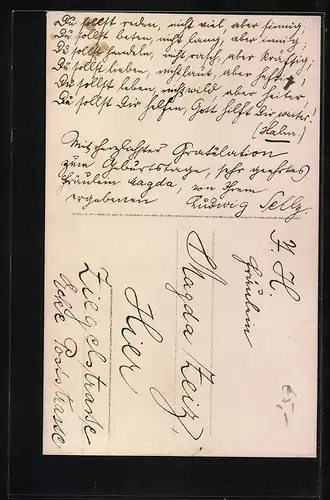 Du sollst reden, nicht viel, aber sinnig,
Du sollst beten, nicht lang, aber innig;
Du sollst handeln, nicht rasch, aber kräftig;
Du sollst lieben, nicht laut, aber heftig;
Du sollst leben, nicht wild, aber heiter,
Du sollst Dir helfen, Gott hilft Dir weiter!
(Halm)
Mit herzlichster Gratulation
zum Geburtstage, sehr geehrtes
Fräulein Magda, von Ihrem
ergebenen Ludwig
Fräulein
Magda Zeiz
Hier
Ziegelstrasse
Ecke Poststrasse